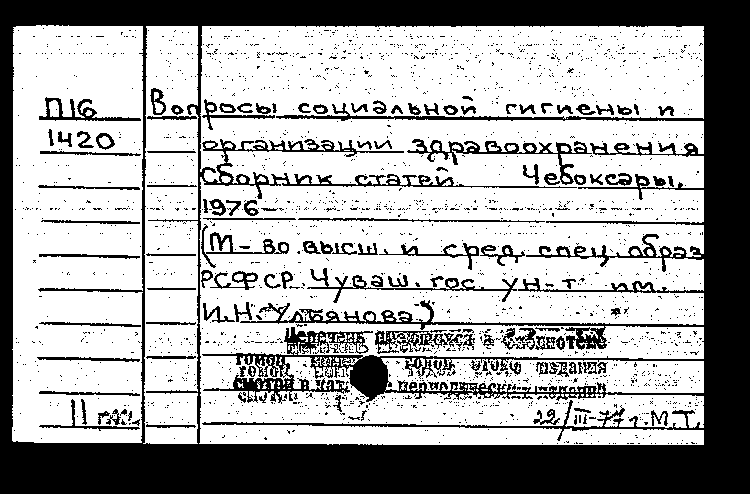 П16 Вопросы социальной гигиены и
1420 организации здравоохранения
Сборник статей. Чебоксары,
1976-
(М-во высш. и сред. спец. образ
РСФСР. Чуваш. гос. ун-т им.
И.Н. Ульянова)
Перечень имеющихся в библиотеке
томов, томов этого издания
смотри в кат. периодических изданий
11 22/III-77 г. М.Т.